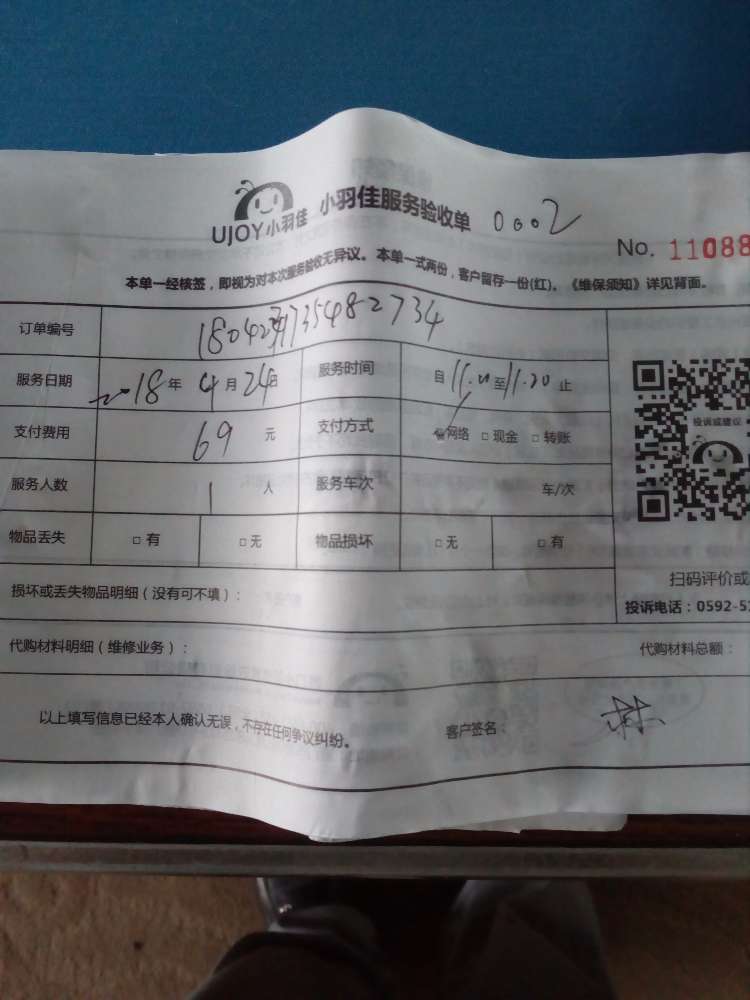 UJOY小羽佳 小羽佳服务验收单 0002
No. 11088
本单一经核签，即视为对本次服务验收无异议。本单一式两份，客户留存一份(红)。《维保须知》详见背面。
订单编号
服务日期 18年 4月24日 服务时间 自 11.00至11.20止
支付费用 69 元 支付方式 网络 □ 现金 □ 转账
投诉或建议
服务人数 1 人 服务车次 车/次
物品丢失 □ 有 □ 无 物品损坏 □ 无 □ 有
扫码评价或
损坏或丢失物品明细（没有可不填）：
投诉电话：0592-5
代购材料明细（维修业务）： 代购材料总额：
以上填写信息已经本人确认无误，不存在任何争议纠纷。 客户签名： 林